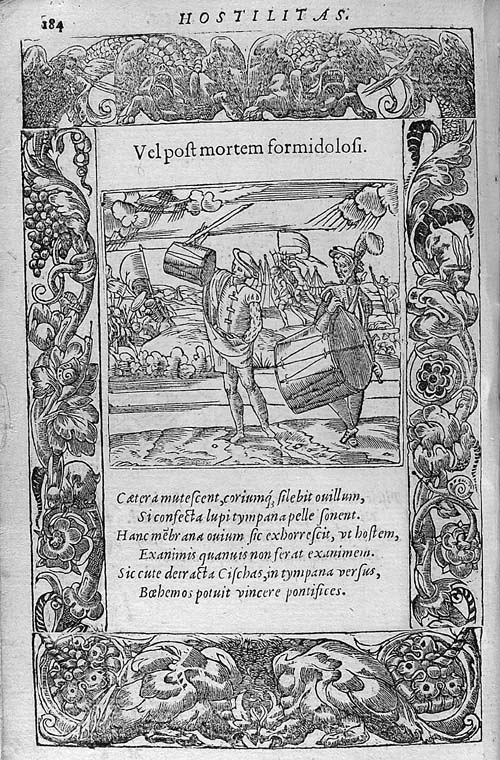 184
HOSTILITAS.
Vel poſt mortem formidoloſi.
Cætera muteſcent, coriumq́; ſilebit ouillum,
Si confecta lupi tympana pelle ſonent.
Hanc mẽbrana ouium ſic exhorreſcit, vt hoſtem,
Exanimis quanuis non ferat exanimem.
Sic cute detracta Ciſchas, in tympana verſus,
Bœhemos potuit vincere pontifices.